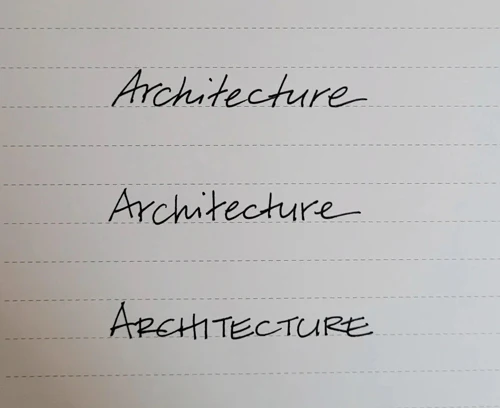 Architecture
Architecture
ARCHITECTURE